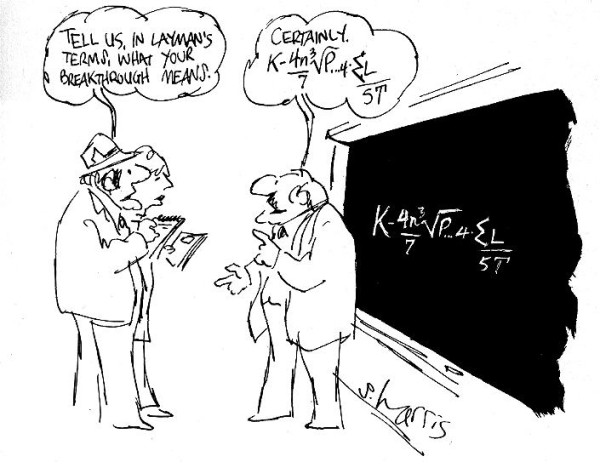 TELL US, IN LAYMAN'S
TERMS, WHAT YOUR
BREAKTHROUGH MEANS.
CERTAINLY.
K-4n³/7 √P...4·Σ L/5T
K-4n³/7 √P...4·Σ L/5T
S. Harris